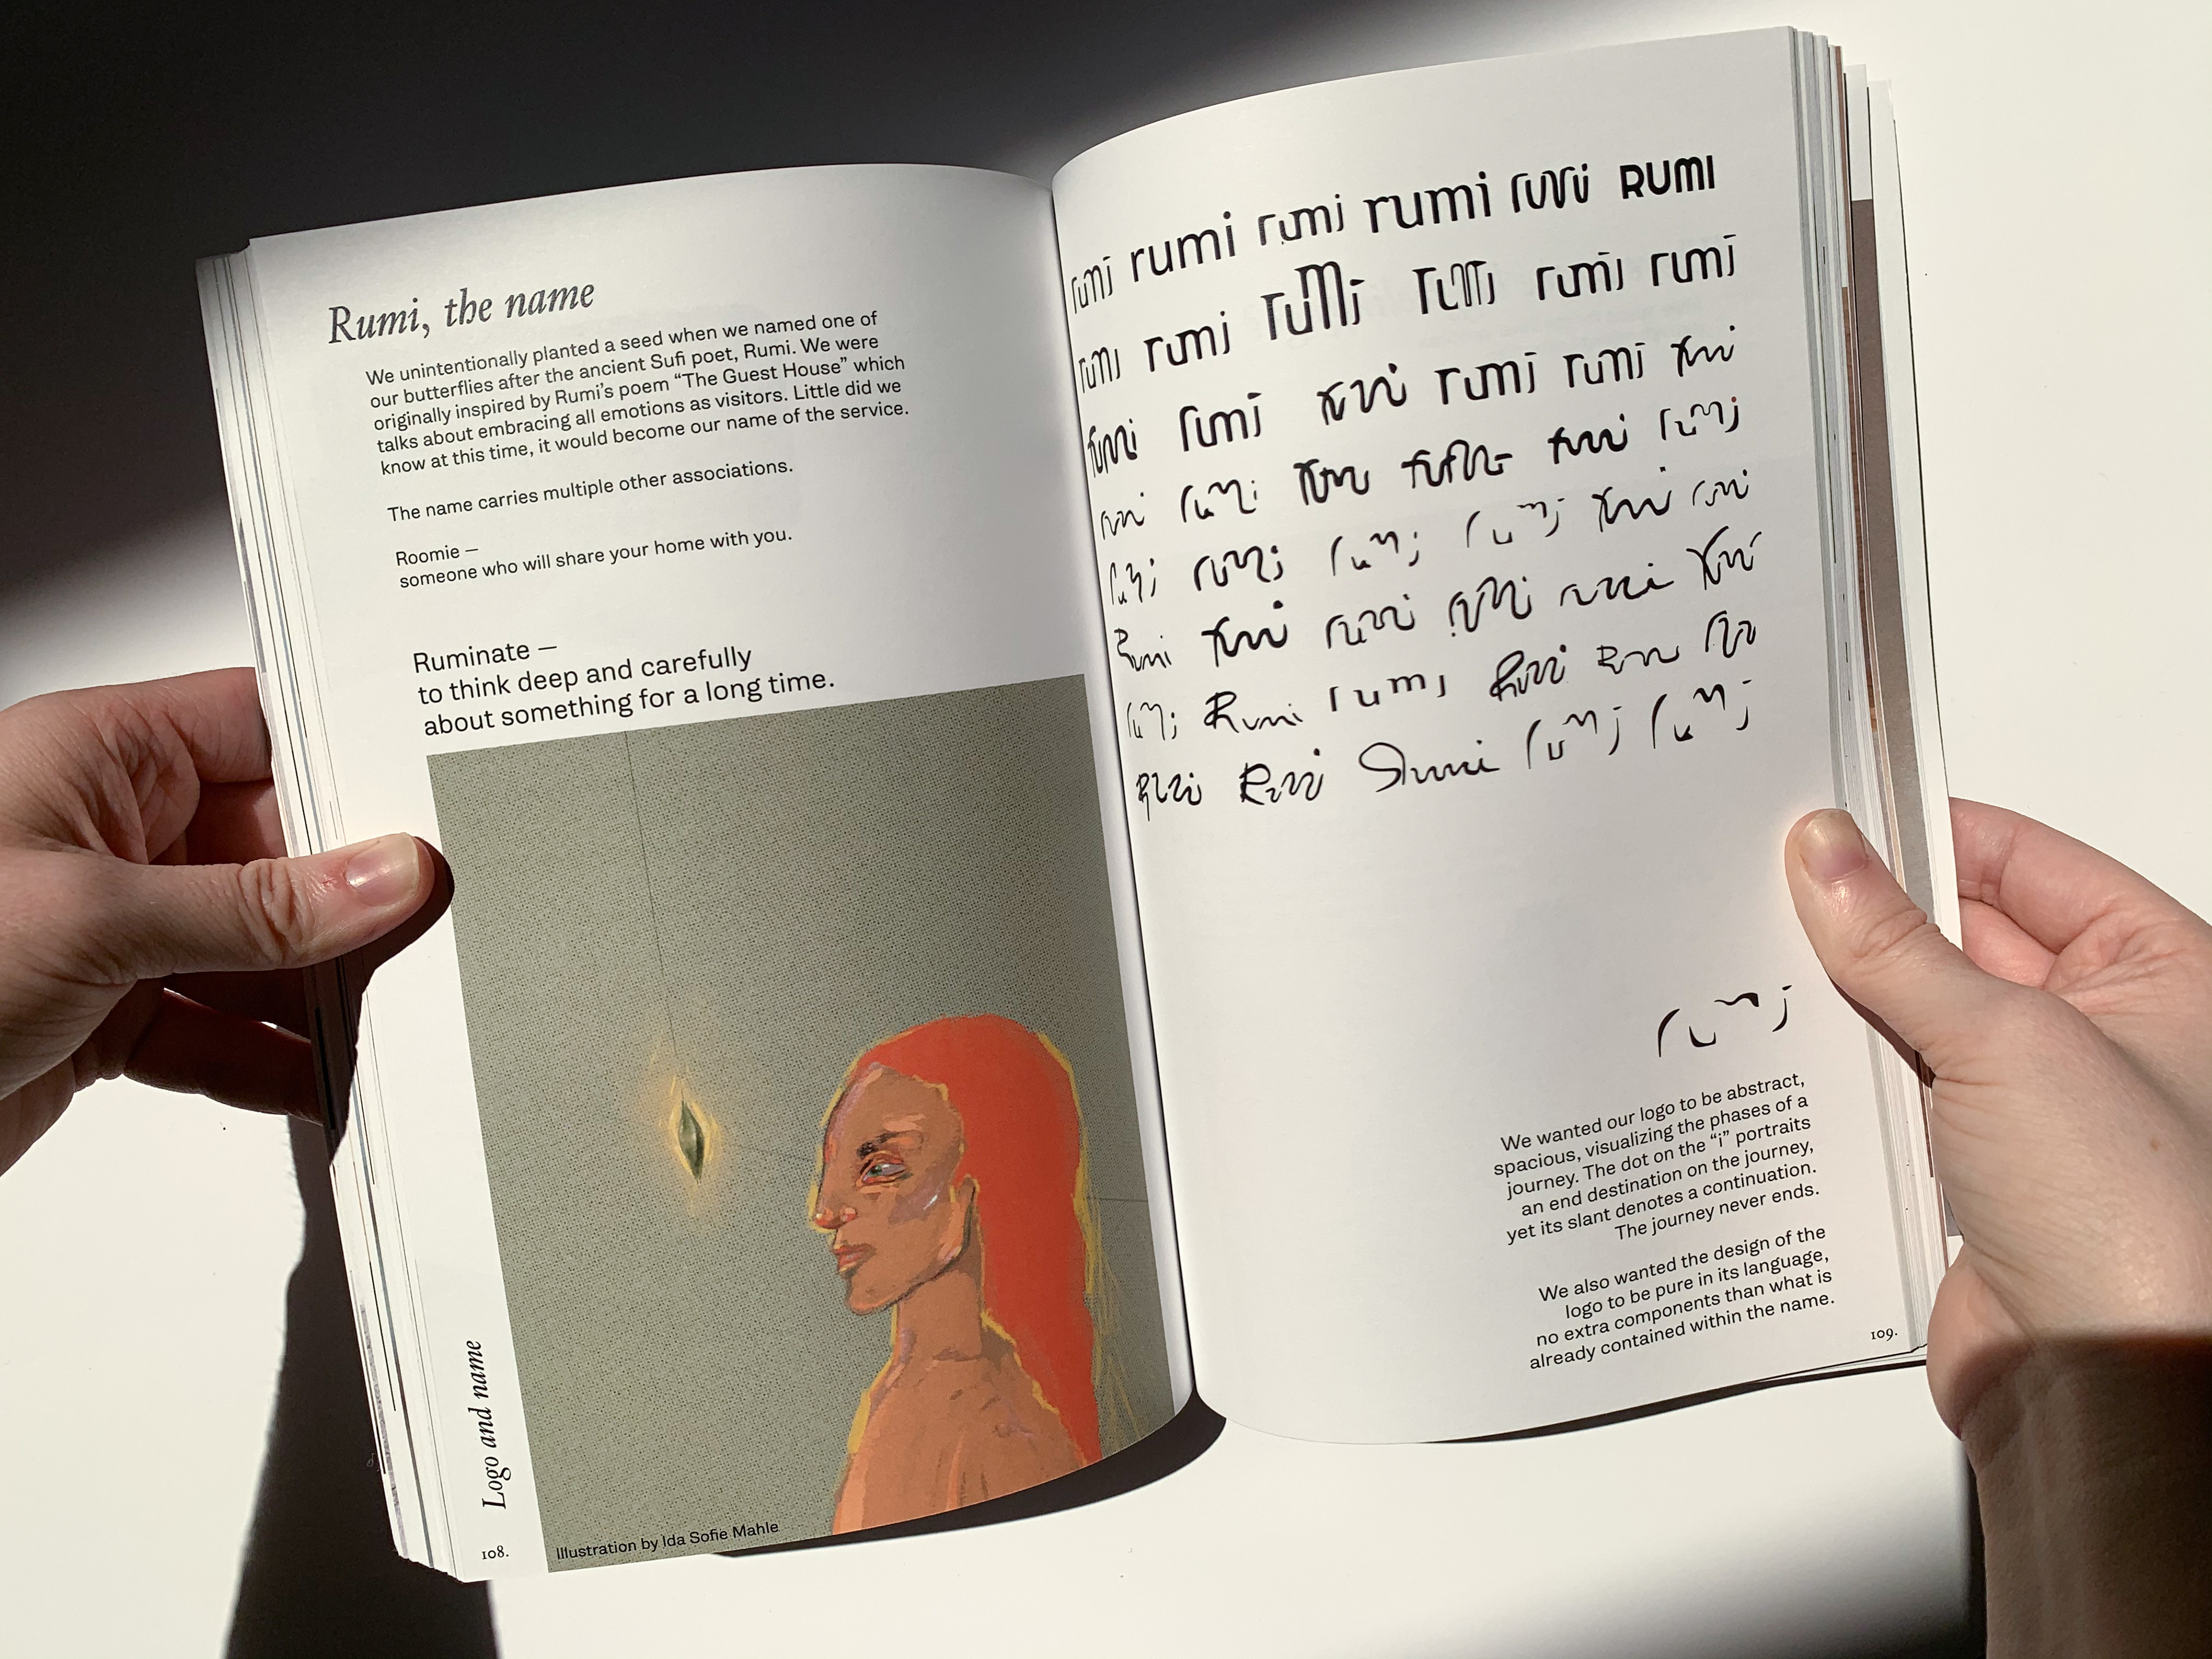 Rumi, the name
We unintentionally planted a seed when we named one of
our butterflies after the ancient Sufi poet, Rumi. We were
originally inspired by Rumi's poem “The Guest House” which
talks about embracing all emotions as visitors. Little did we
know at this time, it would become our name of the service.
The name carries multiple other associations.
Roomie —
someone who will share your home with you.
Ruminate —
to think deep and carefully
about something for a long time.
Illustration by Ida Sofie Mahle
Logo and name
108.
rumi rumi rumi rumi rumi RUMI
rumi rumi rumi rumi rumi rumi
rumi rumi rumi rumi rumi rumi
rumi rumi rumi rumi rumi rumi
rumi rumi rumi rumi rumi rumi
Rumi rumi rumi rumi rumi rumi
rumi Rumi rumi Rumi Rumi rumi
Rumi Rumi Rumi rumi rumi
rumi
We wanted our logo to be abstract,
spacious, visualizing the phases of a
journey. The dot on the “i” portraits
an end destination on the journey,
yet its slant denotes a continuation.
The journey never ends.
We also wanted the design of the
logo to be pure in its language,
no extra components than what is
already contained within the name.
109.